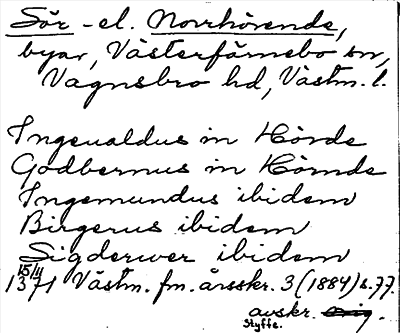 Sör - el. Norrhörende,
byar, Västerfärnebo sn,
Vagnsbro hd, Västm. l.
Ingeualdus in Hörde
Godbernus in Hörnde
Ingemundus ibidem
Birgerus ibidem
Sigderwer ibidem
15/11
1371 Västm. fm. årsskr. 3 (1884) s. 77.
avskr. orig.
Styffe.